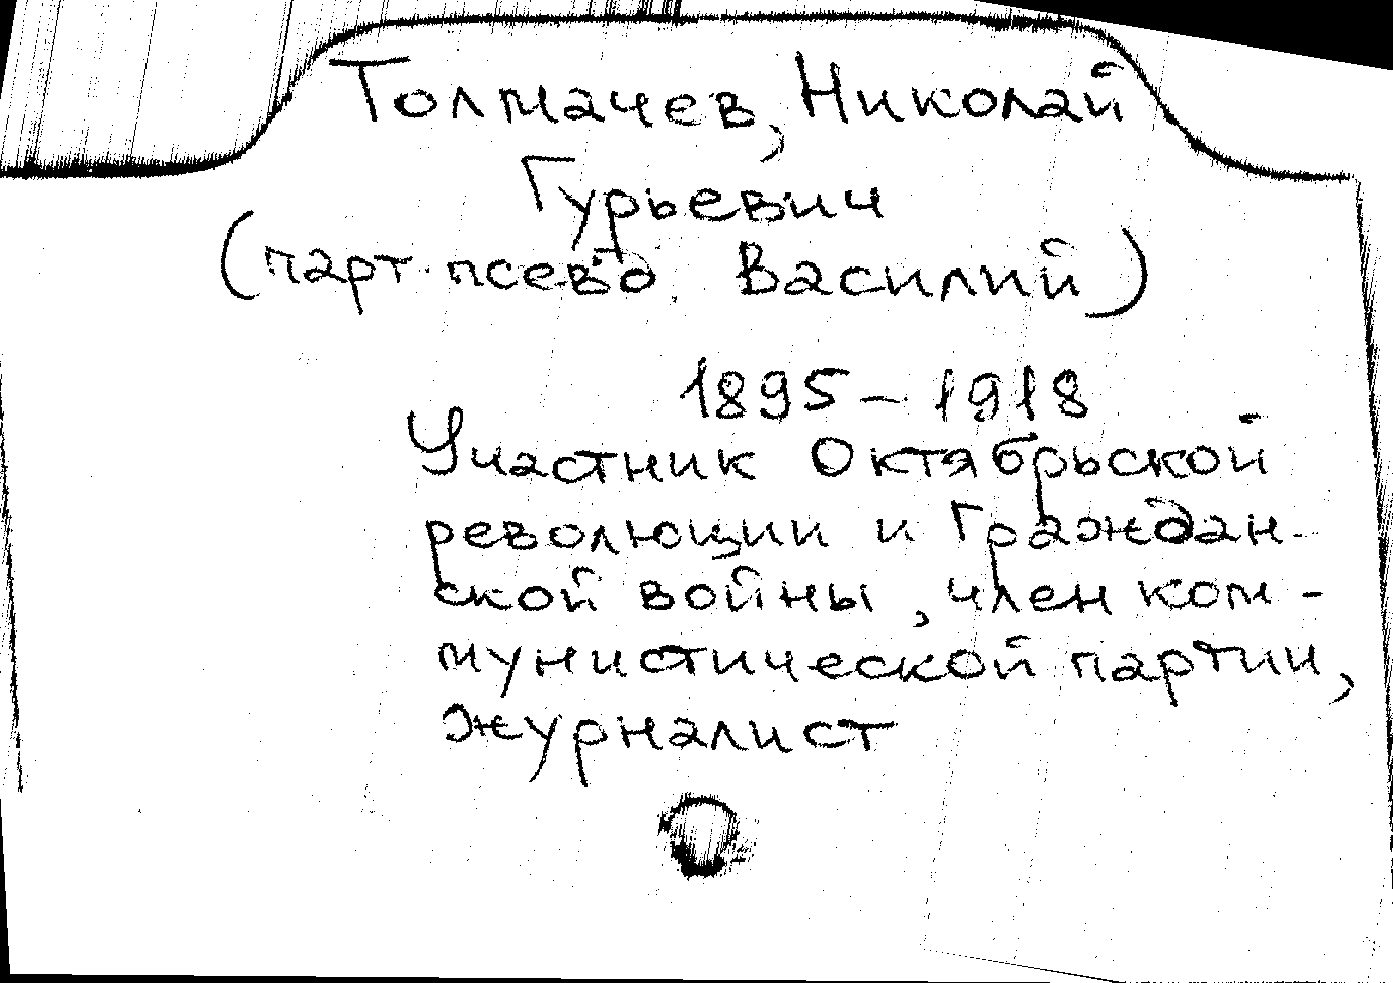 Толмачев, Николай
Гурьевич
(парт. псевд. Василий)
1895 – 1918
Участник Октябрьской
революции и Граждан-
ской войны, член ком-
мунистической партии,
журналист